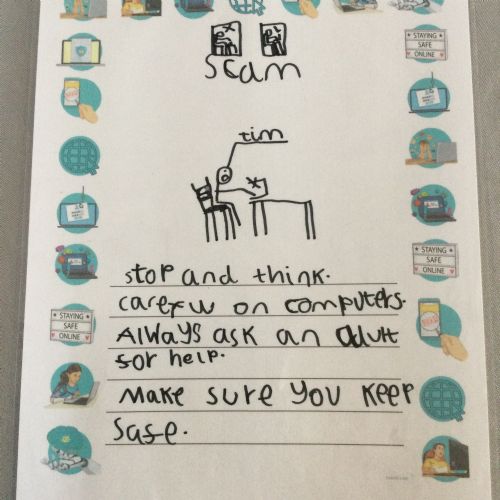 scam
STAYING
SAFE
ONLINE
tim
stop and think.
carefw on computers.
STAYING
SAFE
ONLINE
Always ask an adult
for help.
STAYING
SAFE
ONLINE
Make sure you keep
safe.